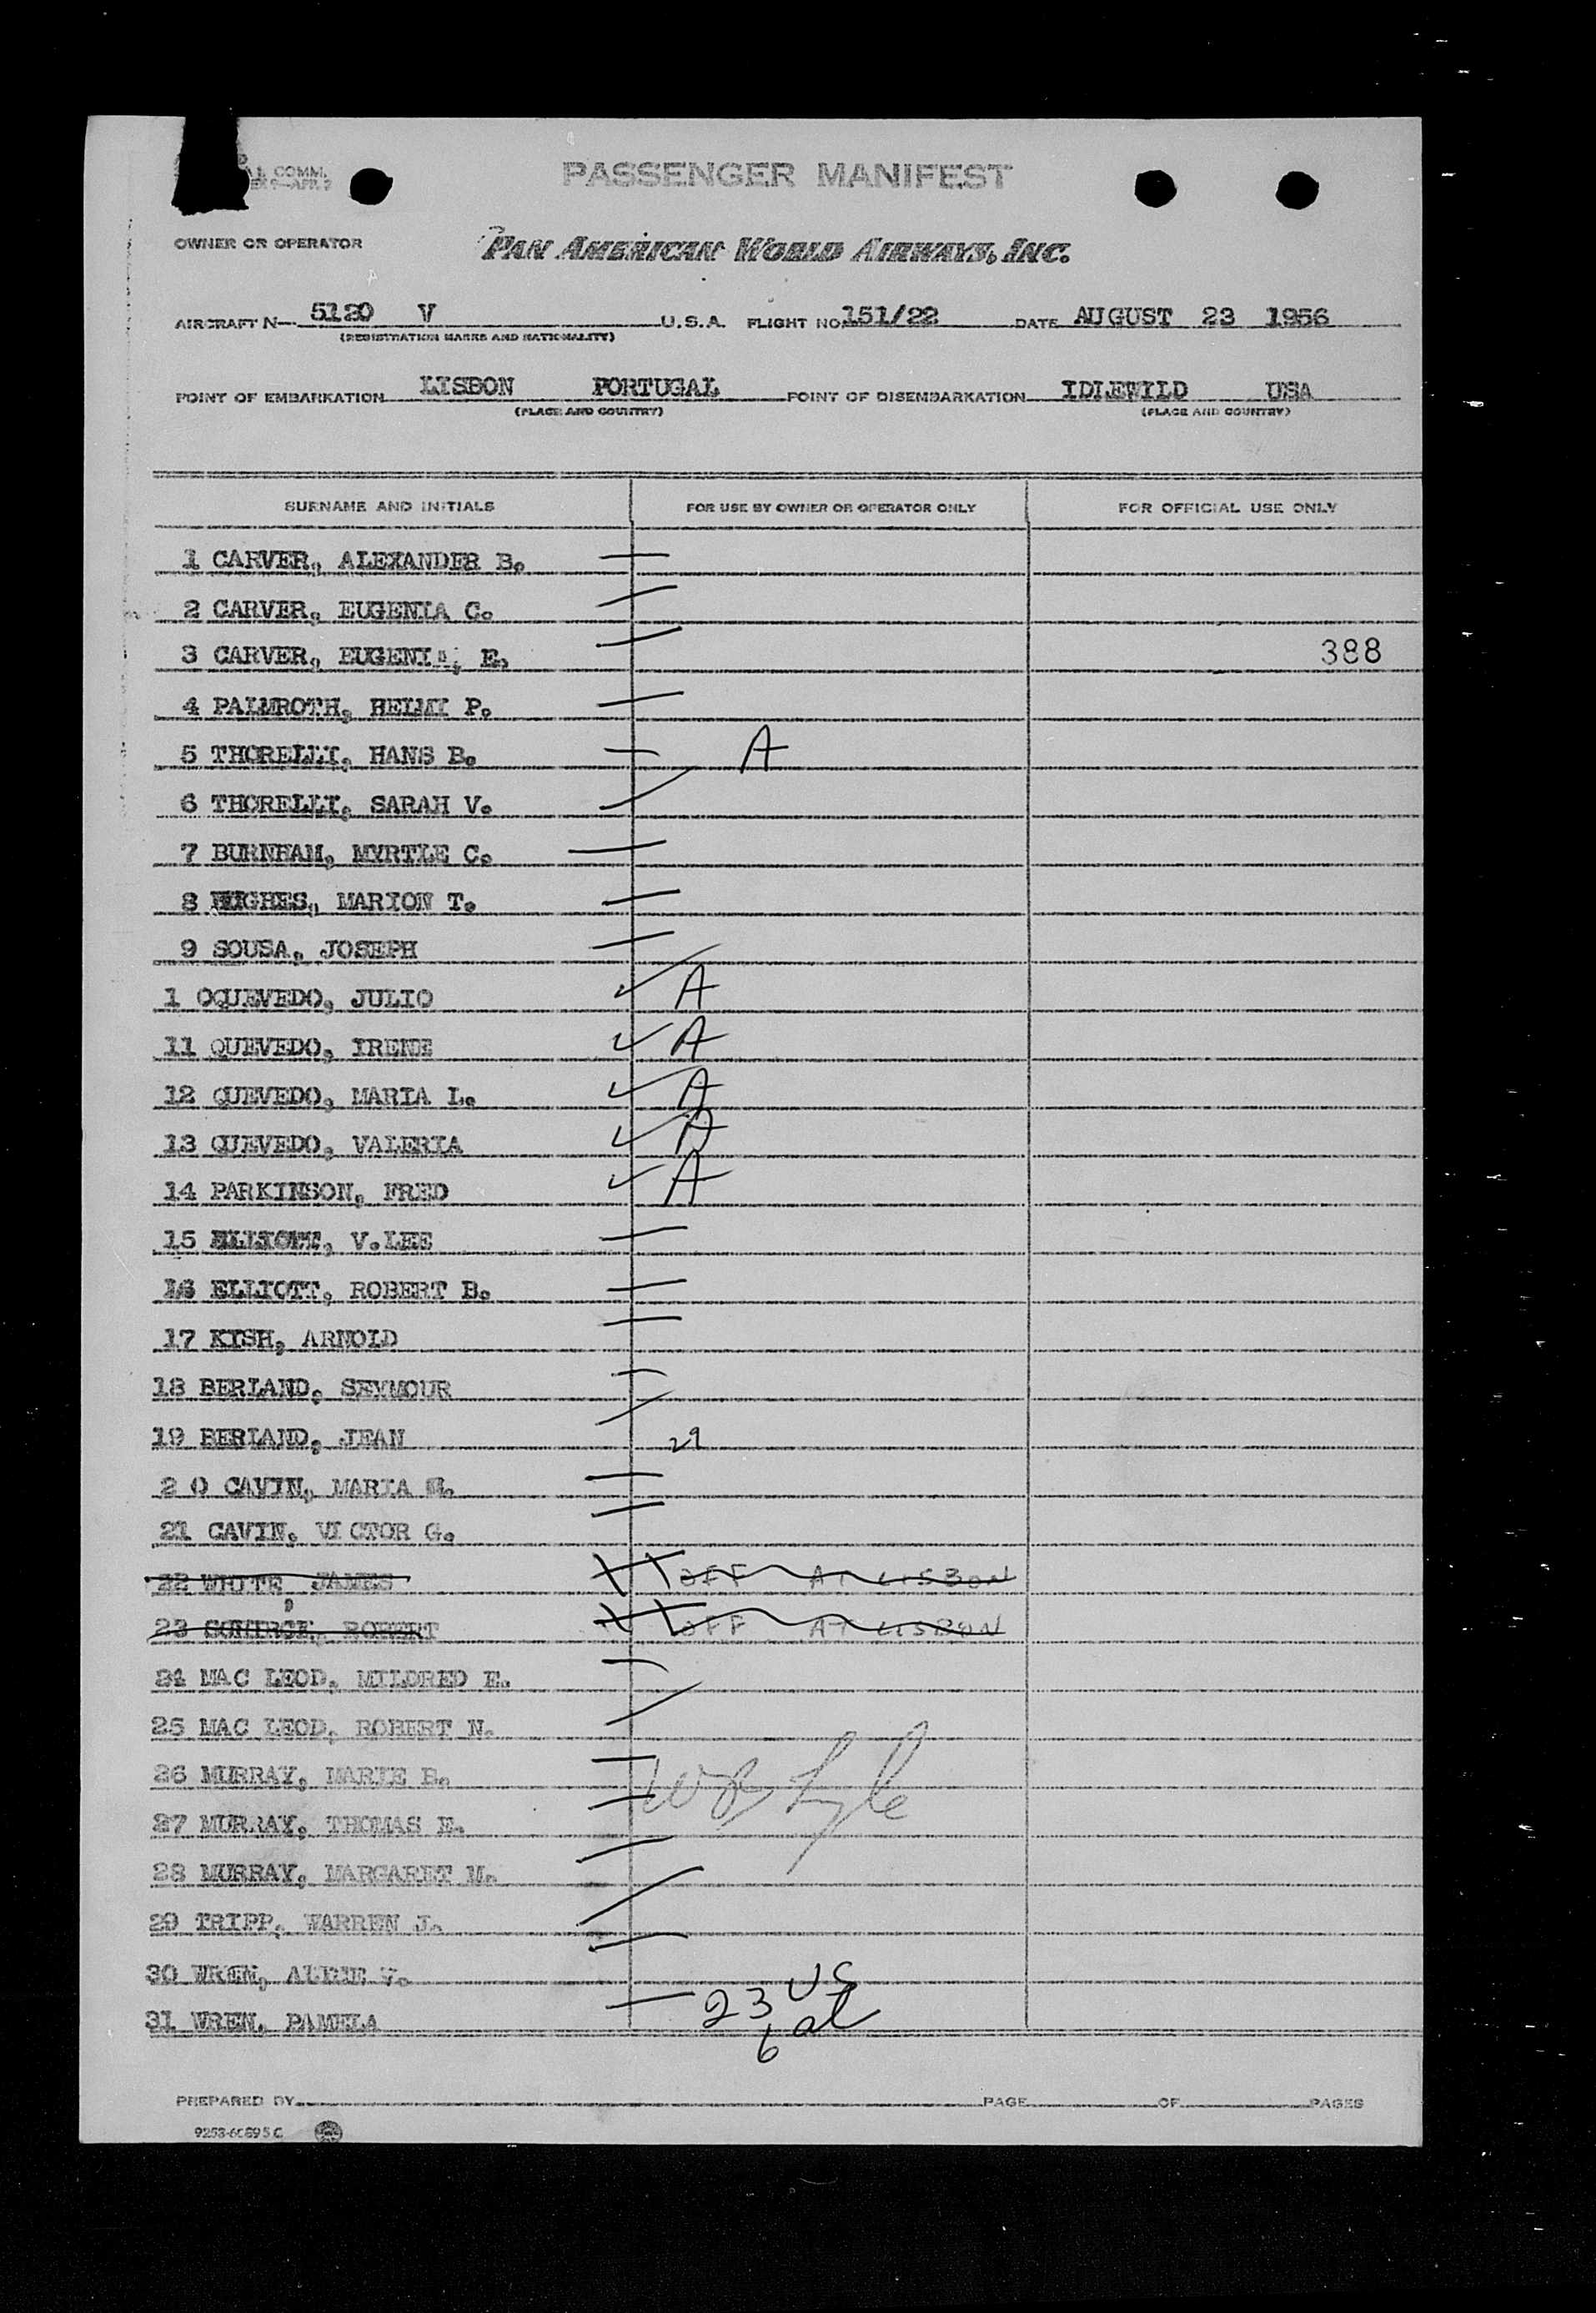 COMM.
PASSENGER MANIFEST
OWNER OR OPERATOR PAN AMERICAN WORLD AIRWAYS, INC.
AIRCRAFT N— 5120 V U.S.A. FLIGHT NO. 151/22 DATE AUGUST 23 1956
(REGISTRATION MARKS AND NATIONALITY)
POINT OF EMBARKATION LISBON PORTUGAL POINT OF DISEMBARKATION IDLEWILD USA
(PLACE AND COUNTRY) (PLACE AND COUNTRY)
SURNAME AND INITIALS FOR USE BY OWNER OR OPERATOR ONLY FOR OFFICIAL USE ONLY
1 CARVER, ALEXANDER B.
2 CARVER, EUGENIA C.
3 CARVER, EUGENIA, E. 388
4 PALMROTH, HELMI P.
5 THORELLI, HANS B. A
6 THORELLI, SARAH V.
7 BURNHAM, MYRTLE C.
8 HUGHES, MARION T.
9 SOUSA, JOSEPH
1 OQUEVEDO, JULIO A
11 QUEVEDO, IRENE A
12 QUEVEDO, MARIA L. A
13 QUEVEDO, VALERIA A
14 PARKINSON, FRED A
15 ELLIOTT, V.LEE
16 ELLIOTT, ROBERT B.
17 KISH, ARNOLD
18 BERLAND, SEYMOUR
19 BERLAND, JEAN 29
2 0 CAVIN, MARIA
21 CAVIN, VICTOR G.
22 WHITE, JAMES OFF AT LISBON
23 ROBERT OFF AT LISBON
24 MAC LEOD, MILDRED E.
25 MAC LEOD, ROBERT N.
26 MURRAY, MARIE B.
27 MURRAY, THOMAS E.
28 MURRAY, MARGARET M.
29 TRIPP, WARREN J.
30 WREN,
31 WREN, PAMELA 23 US
6 al
PREPARED BY PAGE OF PAGES